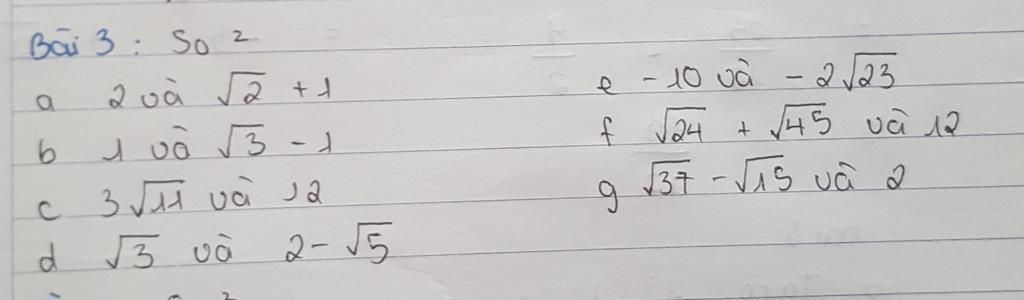 Bài 3 : So²
a 2 và √2 + 1
b 1 và √3 - 1
c 3√11 và 12
d √3 và 2 - √5
e -10 và - 2√23
f √24 + √45 và 12
g √37 - √15 và 2